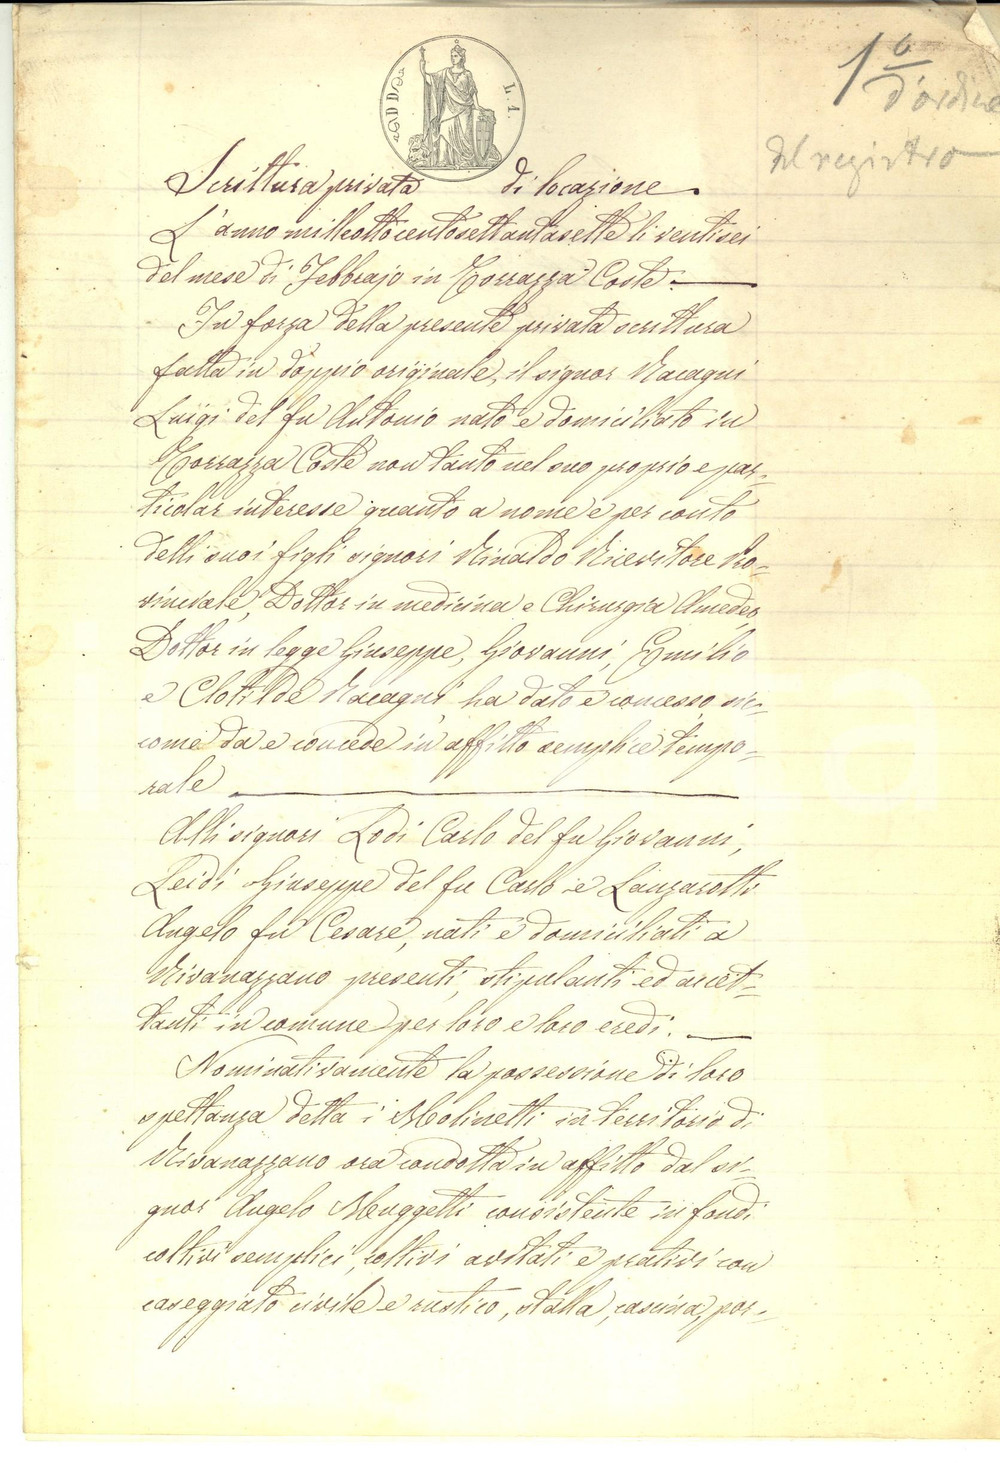 1°
d'ordine
del registro
DD
L. 1.
Scrittura privata di locazione.
L'anno milleottocentosettantasette li ventisei
del mese di Febbrajo in Torrazza Coste.
In forza della presente privata scrittura
fatta in doppio originale, il signor Macagni
Luigi del fu Antonio nato e domiciliato in
Torrazza Coste non tanto nel suo proprio e par-
ticolar interesse quanto a nome e per conto
delli suoi figli signori Rinaldo Ricevitore Pro-
vinciale, Dottor in medicina e Chirurgia Amedeo,
Dottor in legge Giuseppe, Giovanni, Emilio
e Clotilde Macagni ha dato e concesso sic-
come da e concede in affitto semplice tempo-
rale
Alli signori Lodi Carlo del fu Giovanni,
Leidi Giuseppe del fu Carlo e Lanzarotti
Angelo fu Cesare, nati e domiciliati a
Rivanazzano presenti, stipulanti ed accet-
tanti in comune per loro e loro eredi.
Nominativamente la possessione di loro
spettanza detta i Molinetti in territorio di
Rivanazzano ora condotta in affitto dal si-
gnor Angelo Muggetti consistente in fondi
coltivi semplici, coltivi avitati e prativi con
caseggiato civile e rustico, stalla, cascina, por-